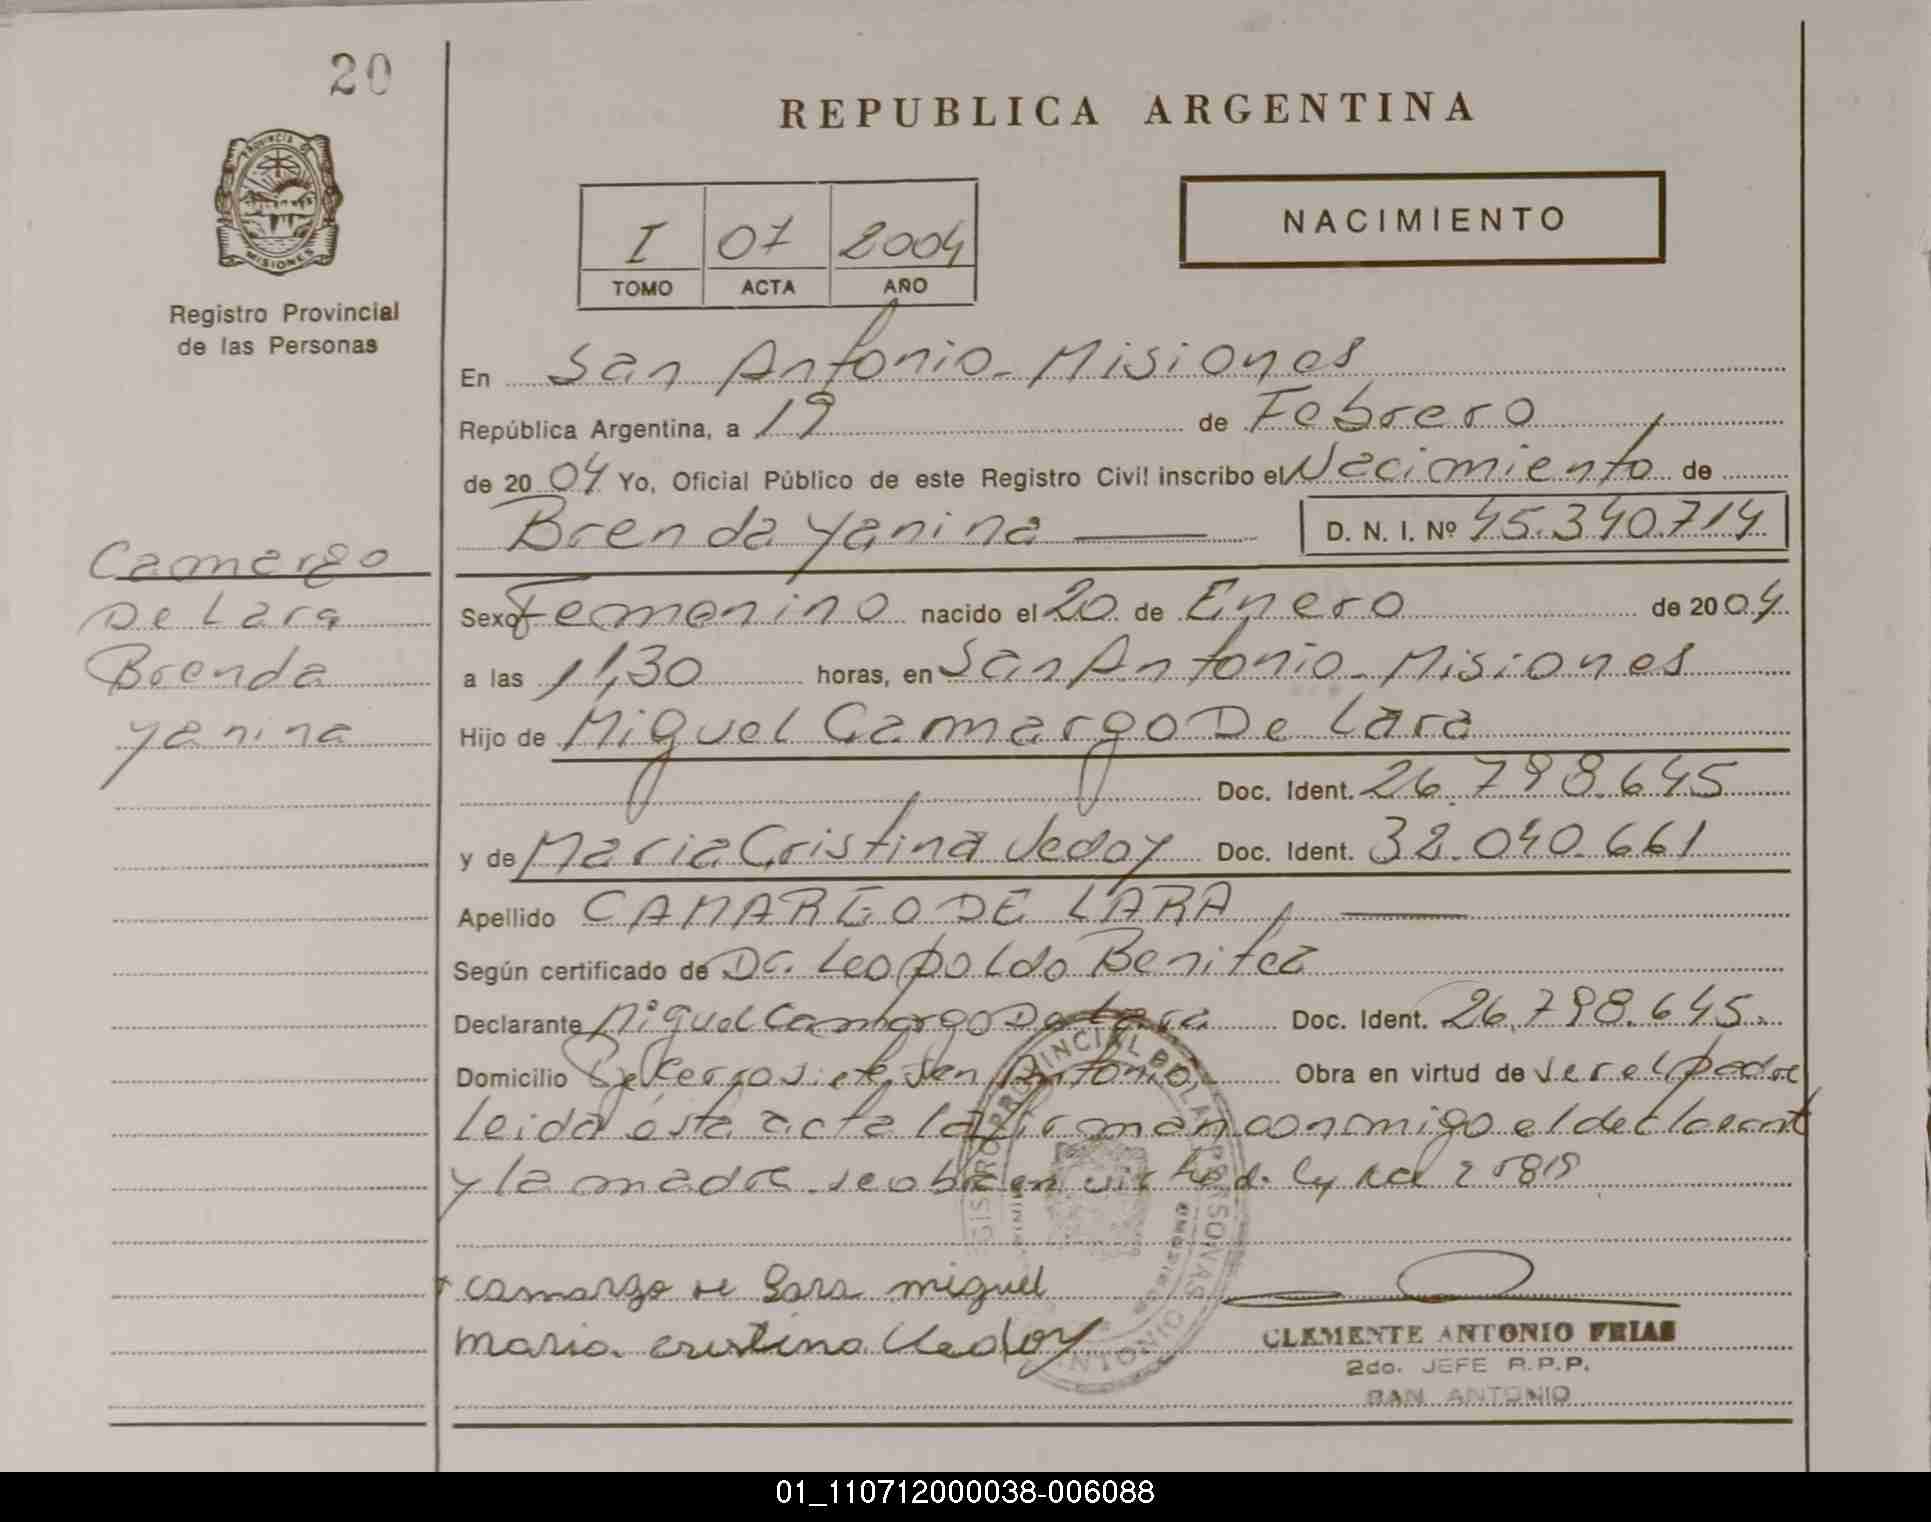 20
REPUBLICA ARGENTINA
PROVINCIA DE
MISIONES
Registro Provincial
de las Personas
I 07 2004
TOMO ACTA AÑO
NACIMIENTO
En San Antonio - Misiones
República Argentina, a 19 de Febrero
de 2004 Yo, Oficial Público de este Registro Civil inscribo el Nacimiento de
Brenda Yanina D. N. I. Nº 45.340.714
Camargo
De Lara
Brenda
Yanina
Sexo Femenino nacido el 20 de Enero de 2004
a las 11,30 horas, en San Antonio - Misiones
Hijo de Miguel Camargo De Lara
Doc. Ident. 26.798.645
y de Maria Cristina Vedoy Doc. Ident. 32.040.661
Apellido CAMARGO DE LARA
Según certificado de Dr. Leopoldo Benitez
Declarante Miguel Camargo De Lara Doc. Ident. 26.798.645
Domicilio San Antonio Obra en virtud de ser el padre
Leida ésta acta la firman conmigo el declarant
y la madre. se obra en virtud
camargo de Lara miguel
maria cristina Vedoy
REGISTRO PROVINCIAL DE LAS PERSONAS
SAN ANTONIO
CLEMENTE ANTONIO FRIAS
2do. JEFE R.P.P.
SAN ANTONIO
01_110712000038-006088